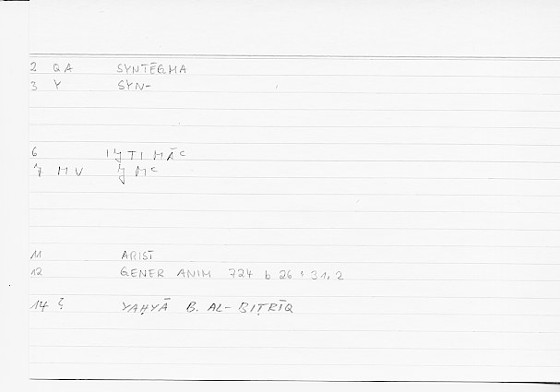 2 QA SYNTĒGMA
3 Y SYN-
6 IǦTIMĀC
7 MV ǦMC
11 ARIST
12 GENER ANIM 724 b 26 : 31,2
14 YAḤYĀ B. AL-BIṬRĪQ